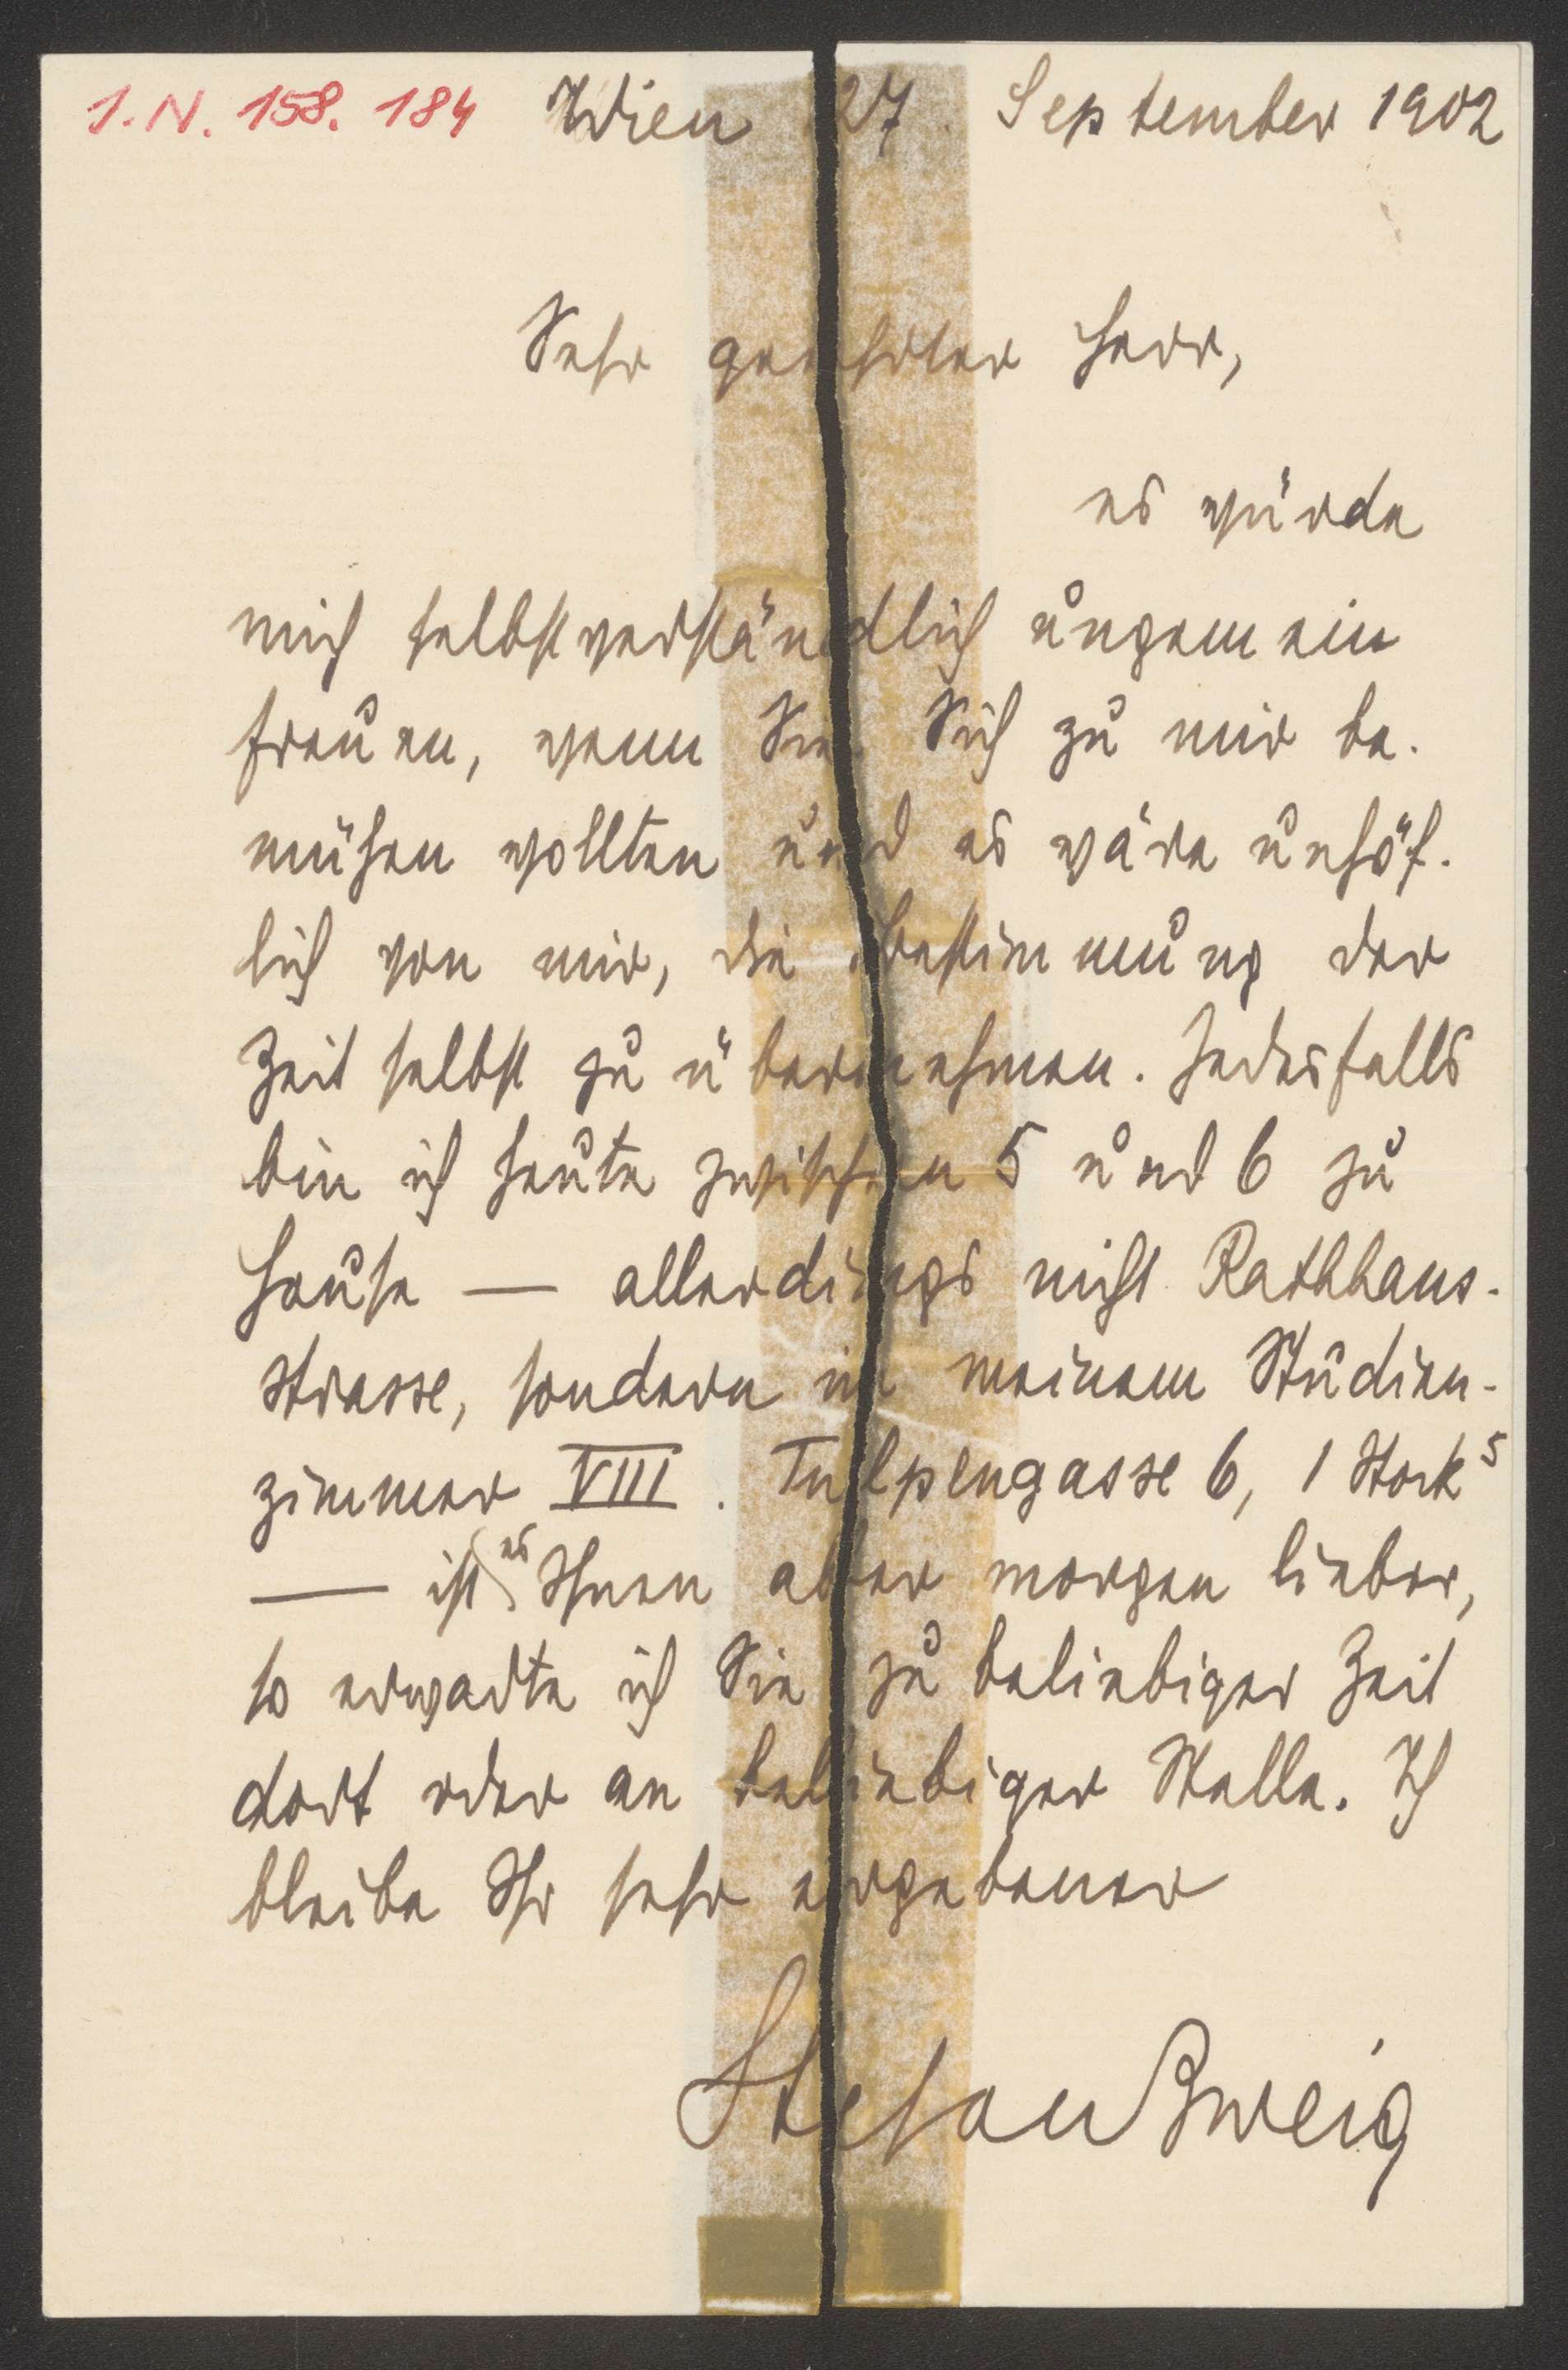 I.N. 158.184 Wien 27. September 1902
Sehr geehrter Herr,
es würde
mich selbstverständlich ungemein
freuen, wenn Sie Sich zu mir be-
mühen wollten und es wäre unhöf-
lich von mir, die Bestimmung der
Zeit selbst zu übernehmen. Jedesfalls
bin ich heute zwischen 5 und 6 zu
Hause — allerdings nicht Rathhaus-
strasse, sondern in meinem Studien-
zimmer VIII. Tulpengasse 6, 1 Stock 5
— ist es Ihnen aber morgen lieber,
so erwarte ich Sie zu beliebiger Zeit
dort oder an beliebiger Stelle. Ich
bleibe Ihr sehr ergebener
Stefan Zweig